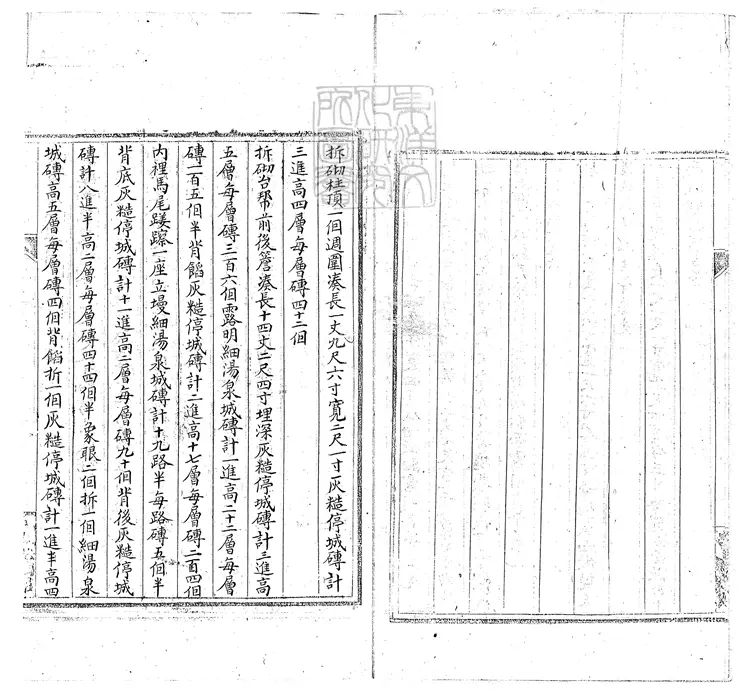 拆砌柱頂一個週圍湊長一丈九尺六寸寬二尺一寸灰糙停城磚計
三進高四層每層磚四十二個
拆砌台幫前後簷湊長十四丈二尺四寸埋深灰糙停城磚計三進高
五層每層磚三百六個露明細湯泉城磚計一進高二十二層每層
磚一百五個半背餡灰糙停城磚計二進高十七層每層磚二百四個
內裡馬尾蹉䠫一座立墁細湯泉城磚計十九路半每路磚五個半
背底灰糙停城磚計十一進高二層每層磚九十個背後灰糙停城
磚計八進半高二層每層磚四十四個半象眼二個折一個細湯泉
城磚高五層每層磚四個背餡折一個灰糙停城磚計一進半高四